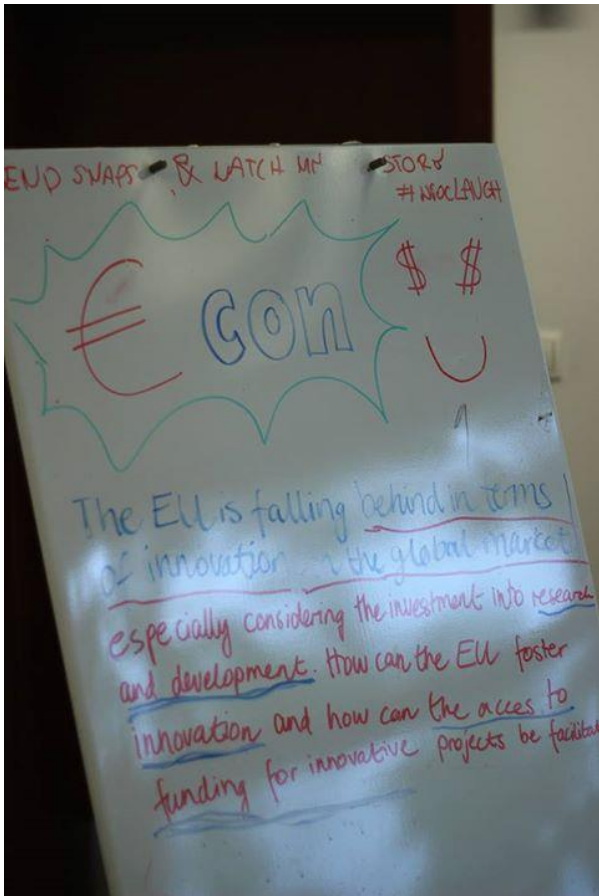 END SNAPS & WATCH MY STORY
#WOCLAUGH
€ con
$ $
The EU is falling behind in terms
of innovation in the global market
especially considering the investment into research
and development. How can the EU foster
innovation and how can the acces to
funding for innovative projects be facilitat